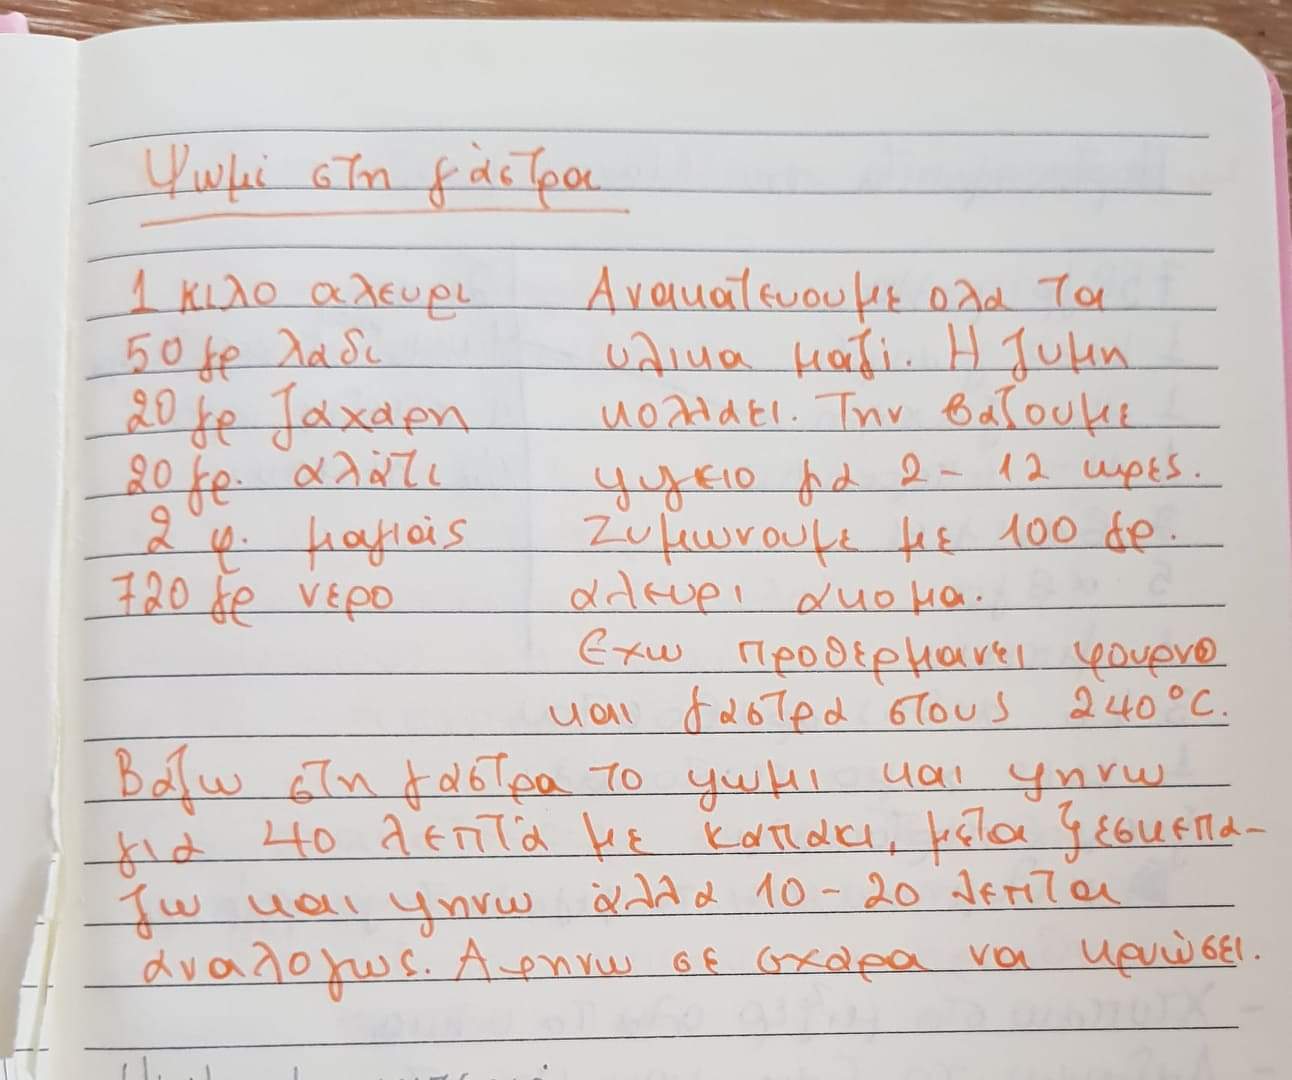 Ψωμί στη γάστρα
1 κιλο αλευρι
50 γρ λαδι
20 γρ ζαχαρη
20 γρ. αλάτι
2 φ. μαγιάς
720 γρ νερο
Ανακατευουμε ολα τα
υλικα μαζι. Η ζυμη
κολλαει. Την βαζουμε
ψυγειο για 2 - 12 ωρες.
Ζυμωνουμε με 100 γρ.
αλευρι ακομα.
Εχω προθερμανει φουρνο
και γαστρα στους 240°C.
Βαζω στη γαστρα το ψωμι και ψηνω
για 40 λεπτά με καπακι, μετα ξεσκεπα-
ζω και ψηνω άλλα 10 - 20 λεπτα
αναλογως. Αφηνω σε σχαρα να κρυώσει.